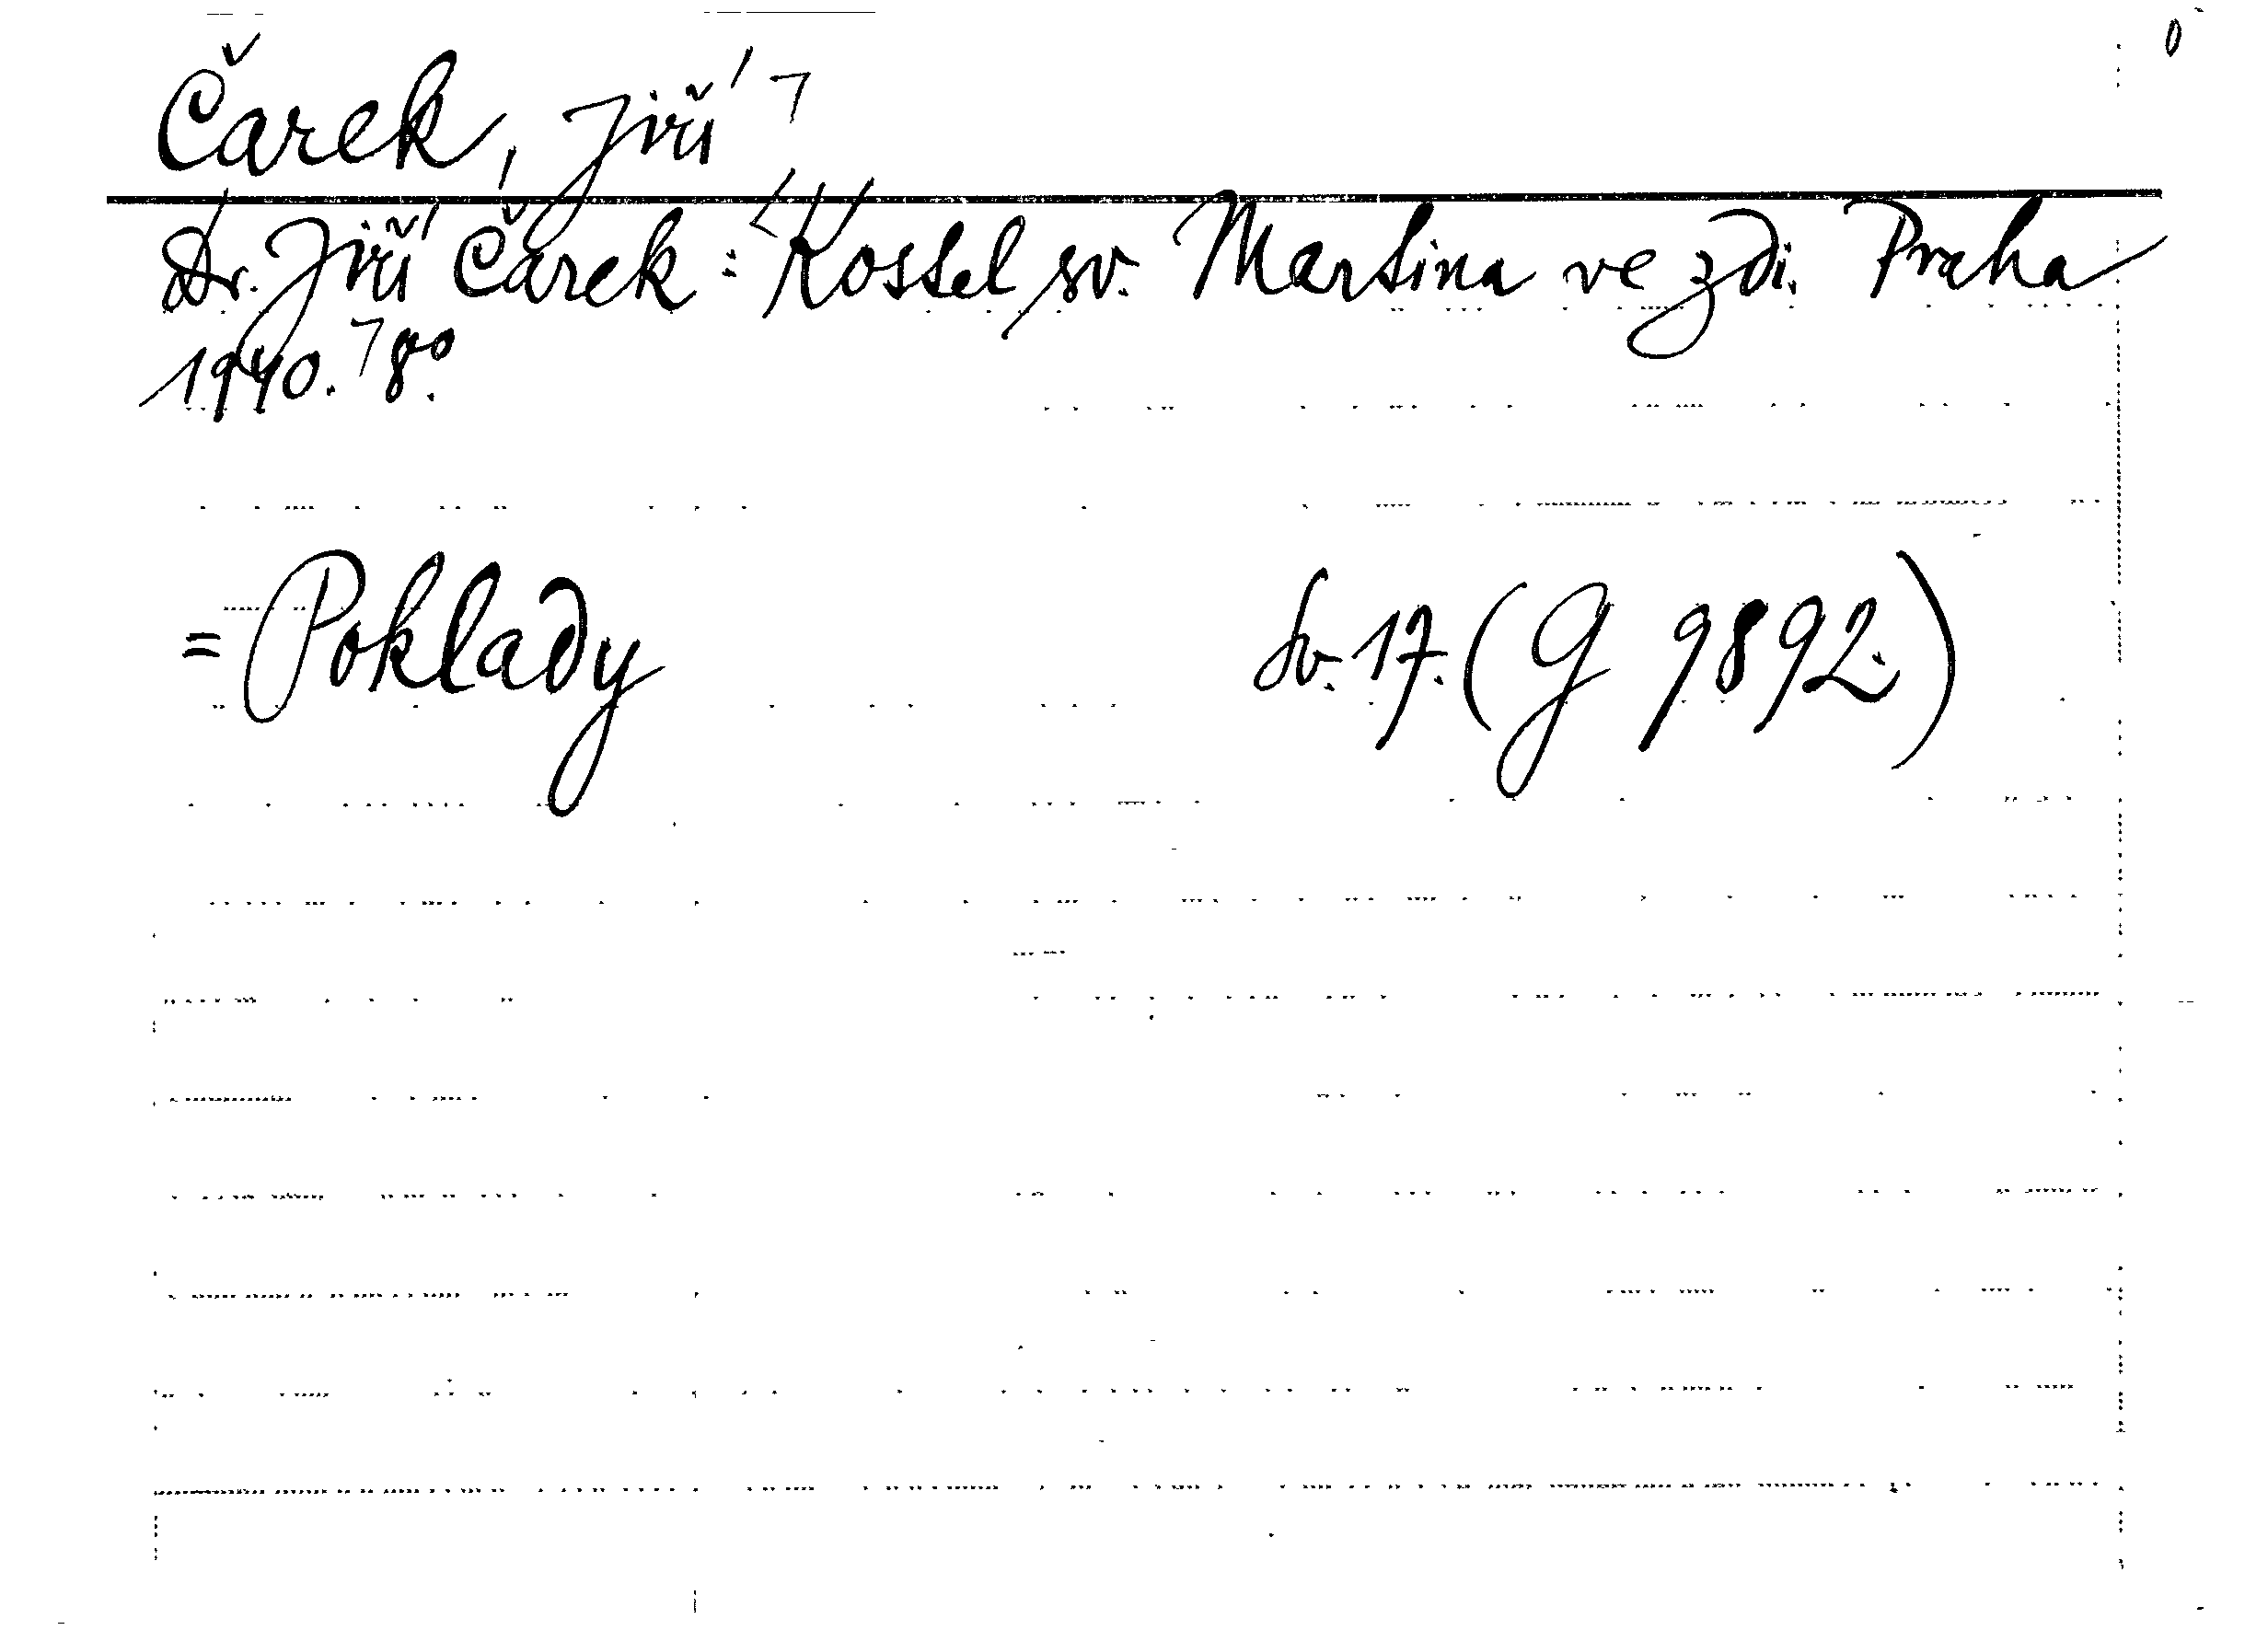 Čarek, Jiří
Dr. Jiří Čarek: Kostel sv. Martina ve zdi. Praha
1940. 8°.
= Poklady sv. 17. (G 9892.)